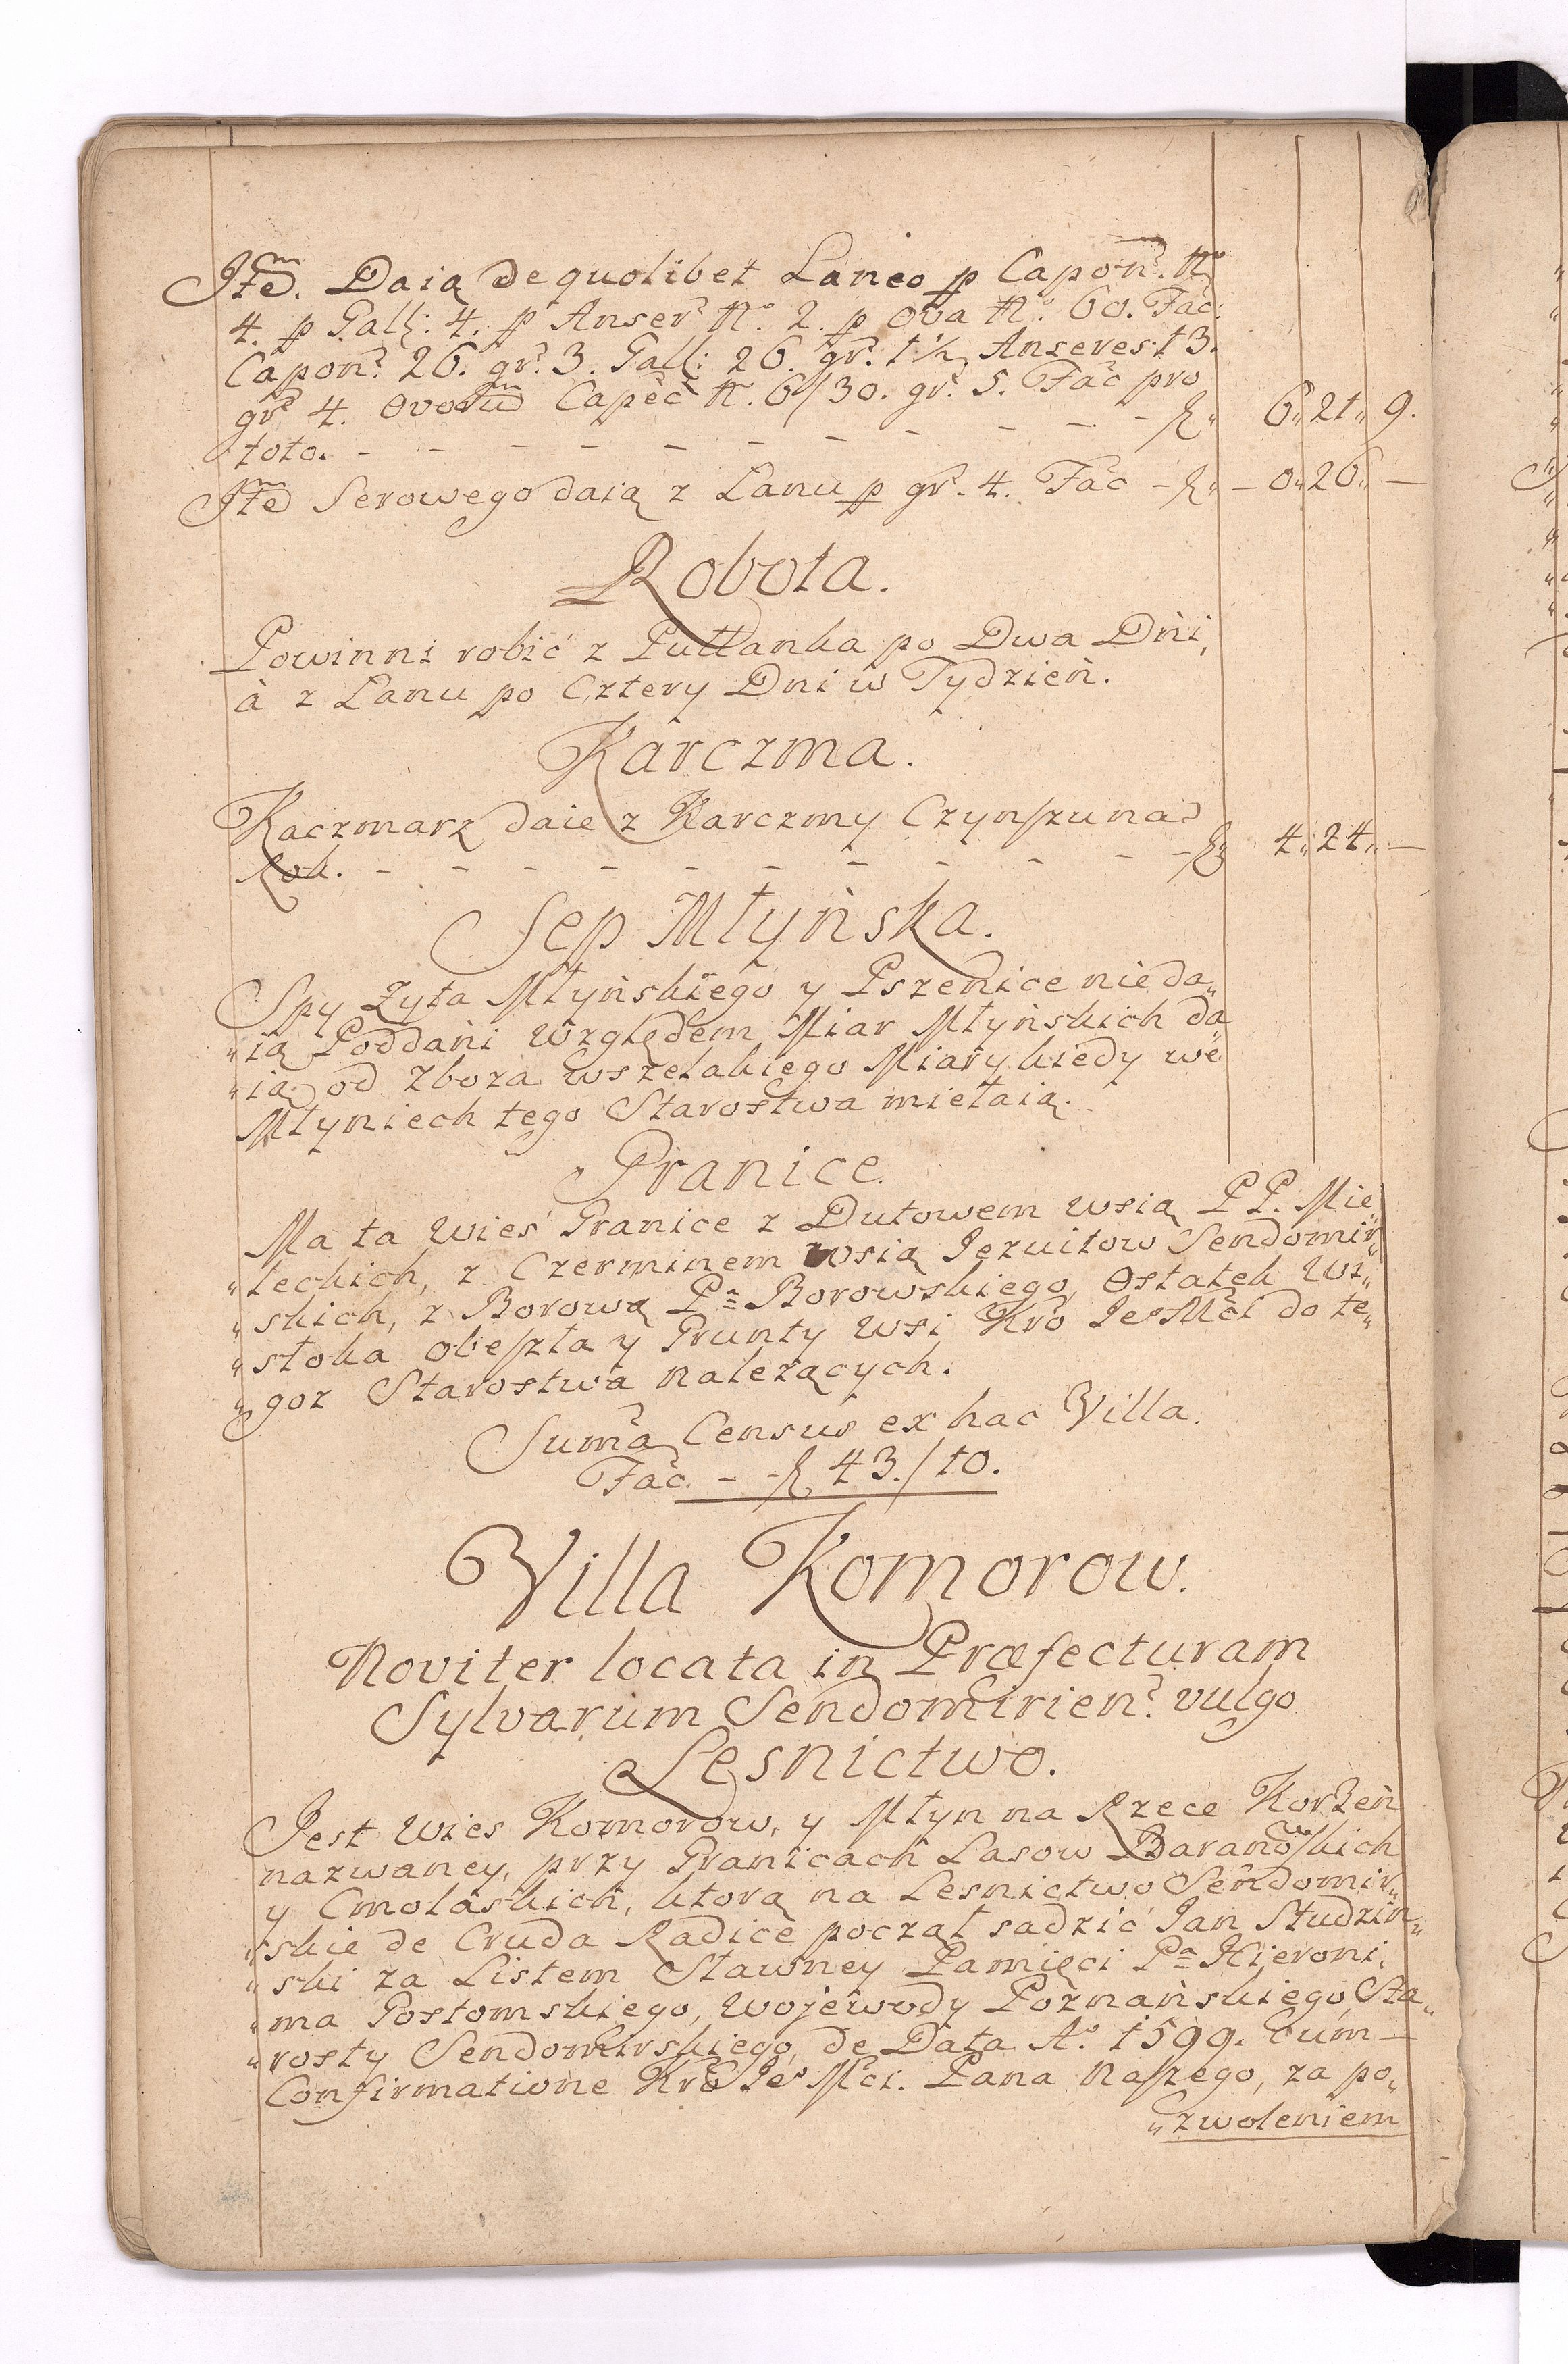 Itẽm. Daią de quolibet Laneo p Capoñ. Nº
4. p Gall: 4. p Anser̃ Nº. 2. p Ova Nº. 60. Fac̃:
Capoñ. 26. gr̃. 3. Gall: 26. gr̃. 1½ Anseres 13.
gr̃ 4. Ovorũm Capec̃ Nº. 6/30. gr̃. 5. Fac̃ pro
toto. - - - - - - - - - - - f„ 6„ 21„ 9.
Itẽm Serowego daią z Łanu p gr̃. 4. Fac̃ - f„ - 0„ 26„ —
Robota.
Powinni robić z Pułłanka po Dwa Dni,
à z Łanu po Cztery Dni w Tydzień.
Karczma.
Kaczmarz daie z Karczmy Czynszu na
Rok. - - - - - - - - - - - f„ 4„ 24„ —
Sep Młyńska.
Spy Zyta Młyńskiego y Pszenice nieda„
„ią Poddani względem Miar Młyńskich da„
„ią od Zboza wszelakiego Miary kiedy we
Młyniech tego Starostwa mielaią.
Granice.
Ma ta Wieś Granice z Dutowem wsią P P. Mie„
„leckich, z Czerminem wsią Jezuitow Sendomir„
„skich, z Borową Pª Borowskiego, Ostatek Wi„
„stoka obeszła y Grunty wsi Kro JeoMći do te„
„goz Starostwa nalezących.
Sum̃a Census ex hac Villa.
Fac̃. - - f 43./10.
Villa Komorow.
Noviter locata in Præfecturam
Sylvarum Sendomirień. vulgo
Lesnictwo.
Jest Wies Komorow, y Młyn na Rzece Korzeń
nazwaney, przy Granicach Lasow Baranowskich
y Cmolaskich, ktorą na Lesnictwo Sendomir„
„skie de Cruda Radice począł sadzić Jan Studzin„
„ski za Listem Sławney Pamięci Pª Hieroni„
„ma Gostomskiego, Wojewody Poznańskiego, Sta„
„rosty Sendomirskiego, de Data Aº. 1599. Cum —
Confirmatione Kro Jeo Mći. Pana Naszego, za po„
„zwoleniem